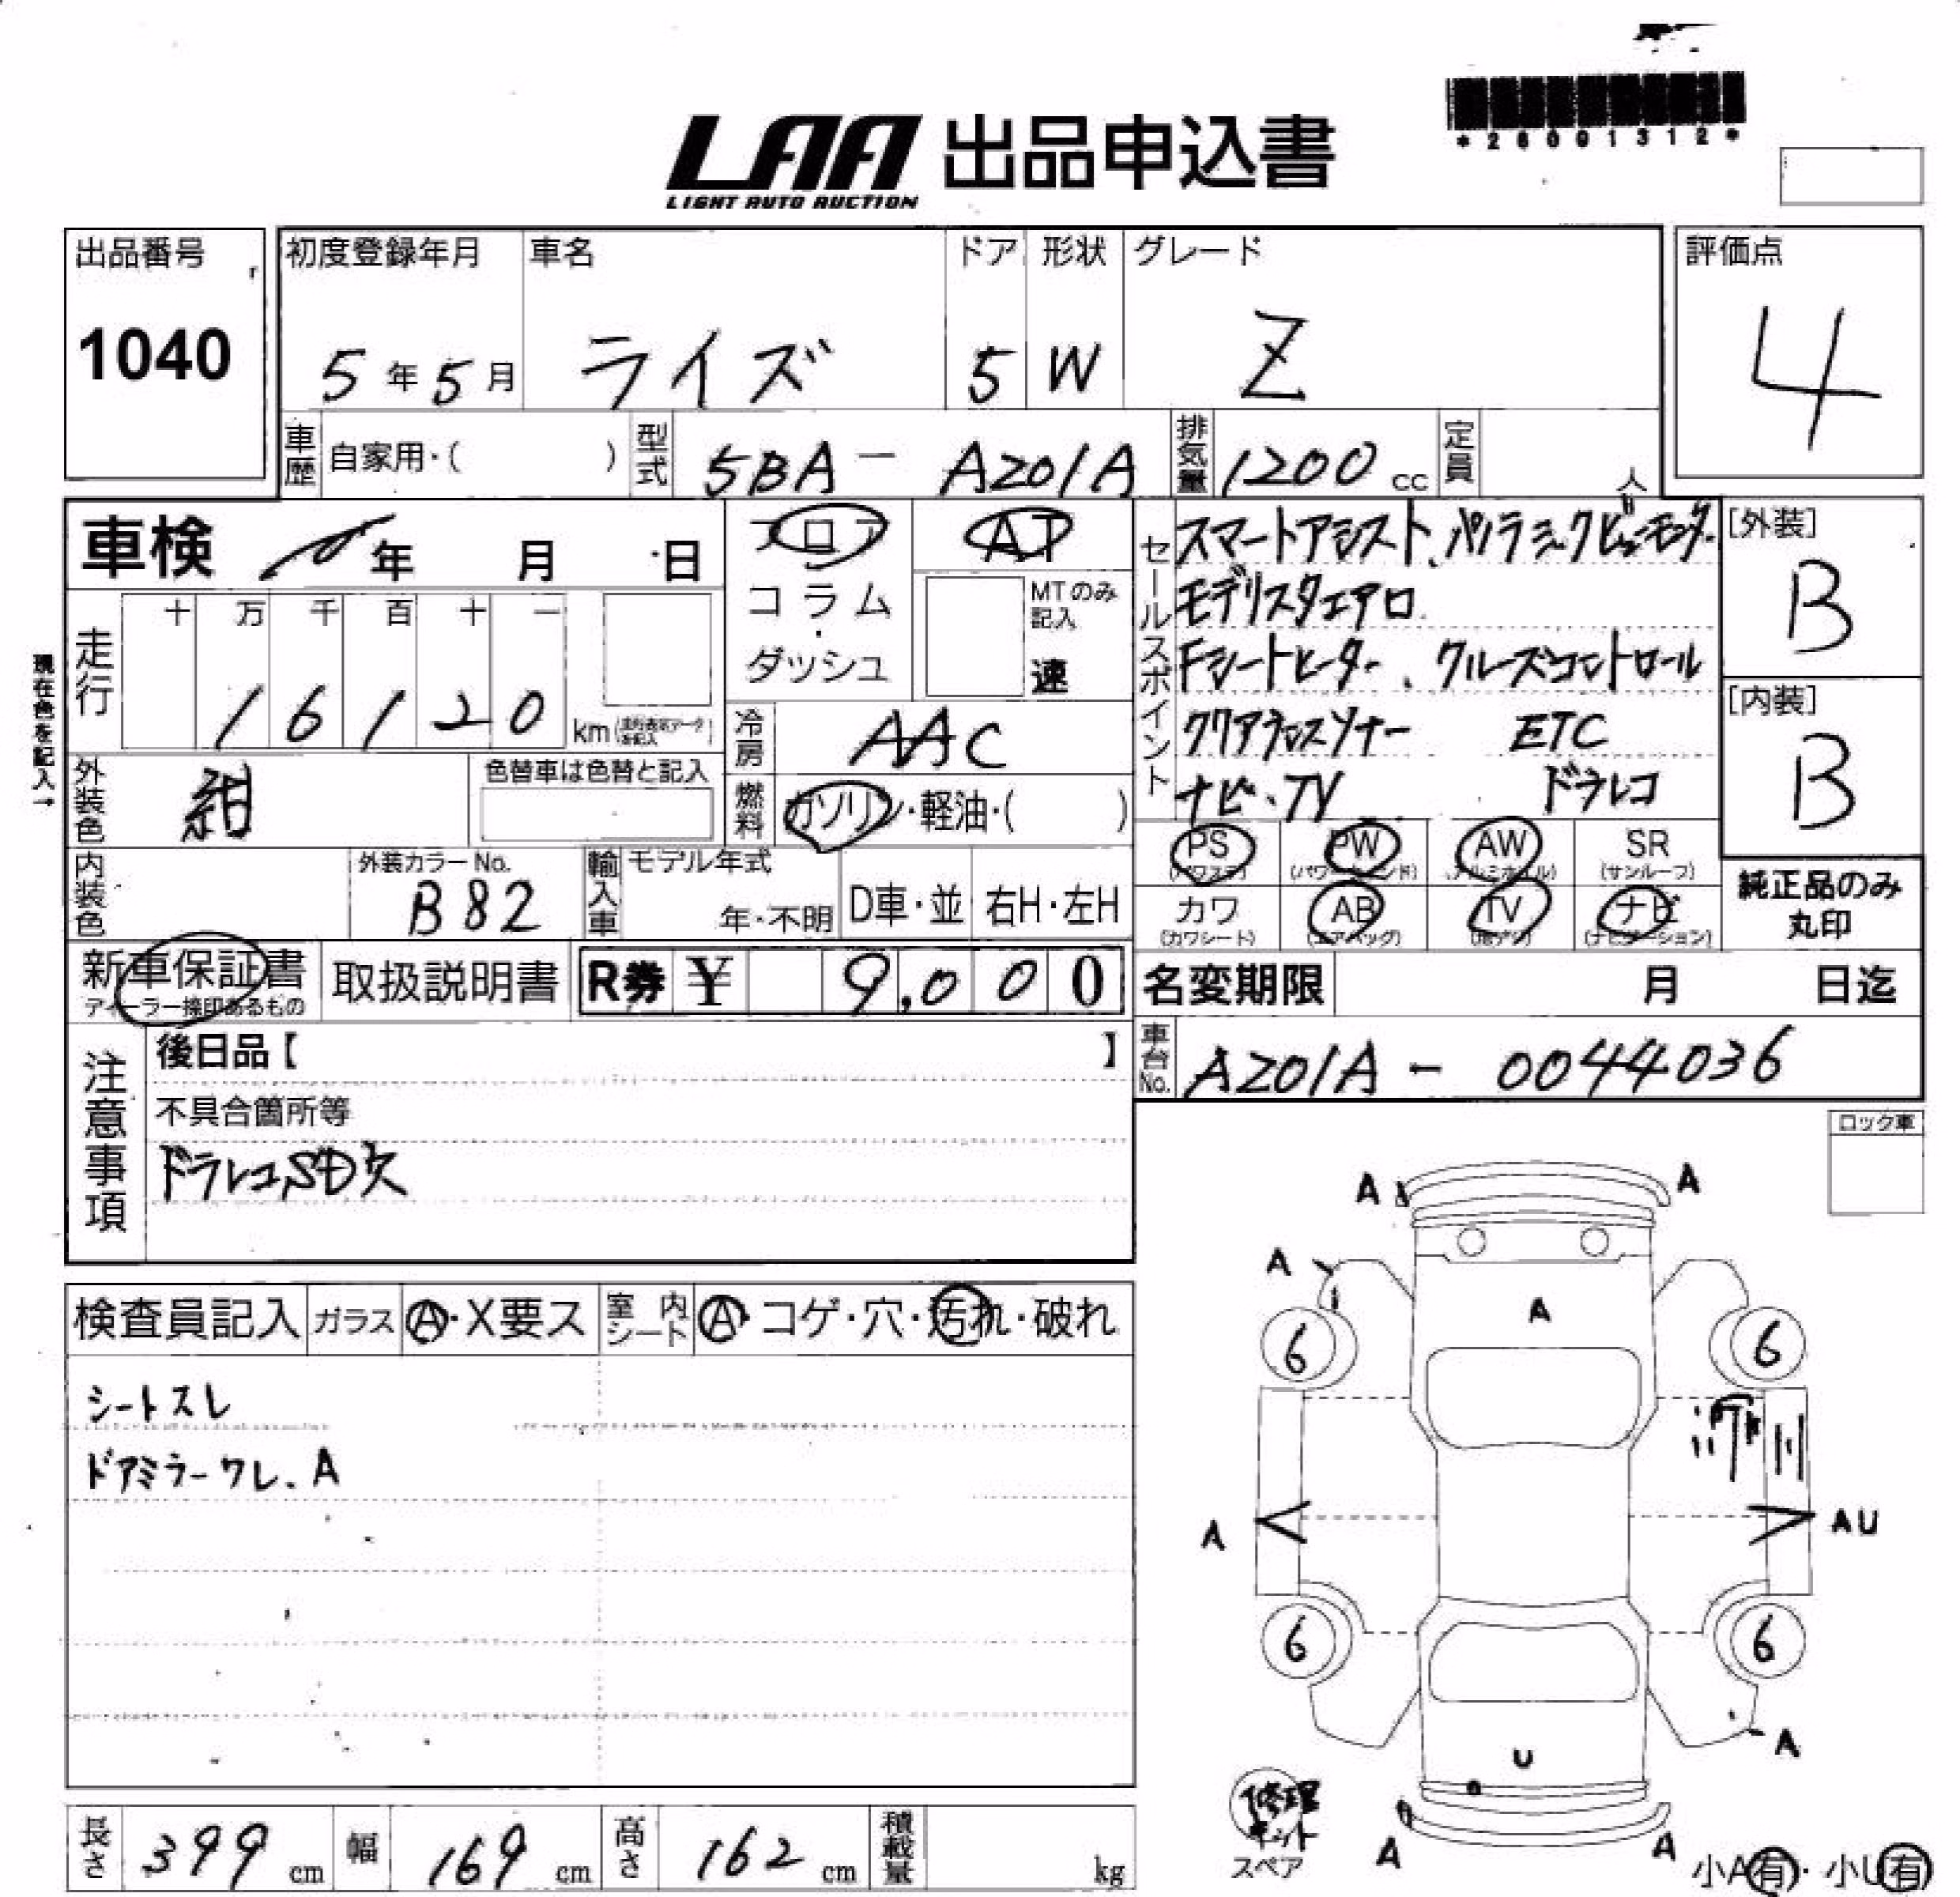 *26001312*
LAA 出品申込書
LIGHT AUTO AUCTION
出品番号
1040
初度登録年月
5年5月
車名
ライズ
ドア
5
形状
W
グレード
Z
評価点
4
車歴 自家用・( )
型式 5BA- A201A
排気量 1200cc
定員 人
車検 年 月 日
フロア
コラム
・
ダッシュ
AT
MTのみ
記入
速
走行
十 万 千 百 十 一
16120 km
現在色を記入→
外装色 紺
色替車は色替と記入
冷房 AAC
燃料 ガソリン・軽油・( )
内装色
外装カラーNo.
B82
輸入車 モデル年式
年・不明
D車・並 右H・左H
セールスポイント
スマートアシスト、パノラミックビューモニター
モデリスタエアロ
Fシートヒーター、クルーズコントロール
クリアランスソナー ETC
ナビ・TV ドラレコ
[外装]
B
[内装]
B
PS (パワステ) PW (パワーウインド) AW (アルミホイル) SR (サンルーフ)
カワ (カワシート) AB (エアバッグ) TV (地デジ) ナビ (ナビゲーション)
純正品のみ
丸印
新車保証書
ディーラー捺印あるもの
取扱説明書
R券 ¥ 9,000
名変期限 月 日迄
車台No. A201A - 0044036
注意事項
後日品【 】
不具合箇所等
ドラレコSD欠
ロック車
検査員記入 ガラス A・X要ス
室内シート A・コゲ・穴・汚れ・破れ
シートスレ
ドアミラーワレ、A
A A
A
A
6 6
A AU
6 6
A
U
A A
修理
キット
スペア
小A有・小U有
長さ 399cm
幅 169cm
高さ 162cm
積載量 kg